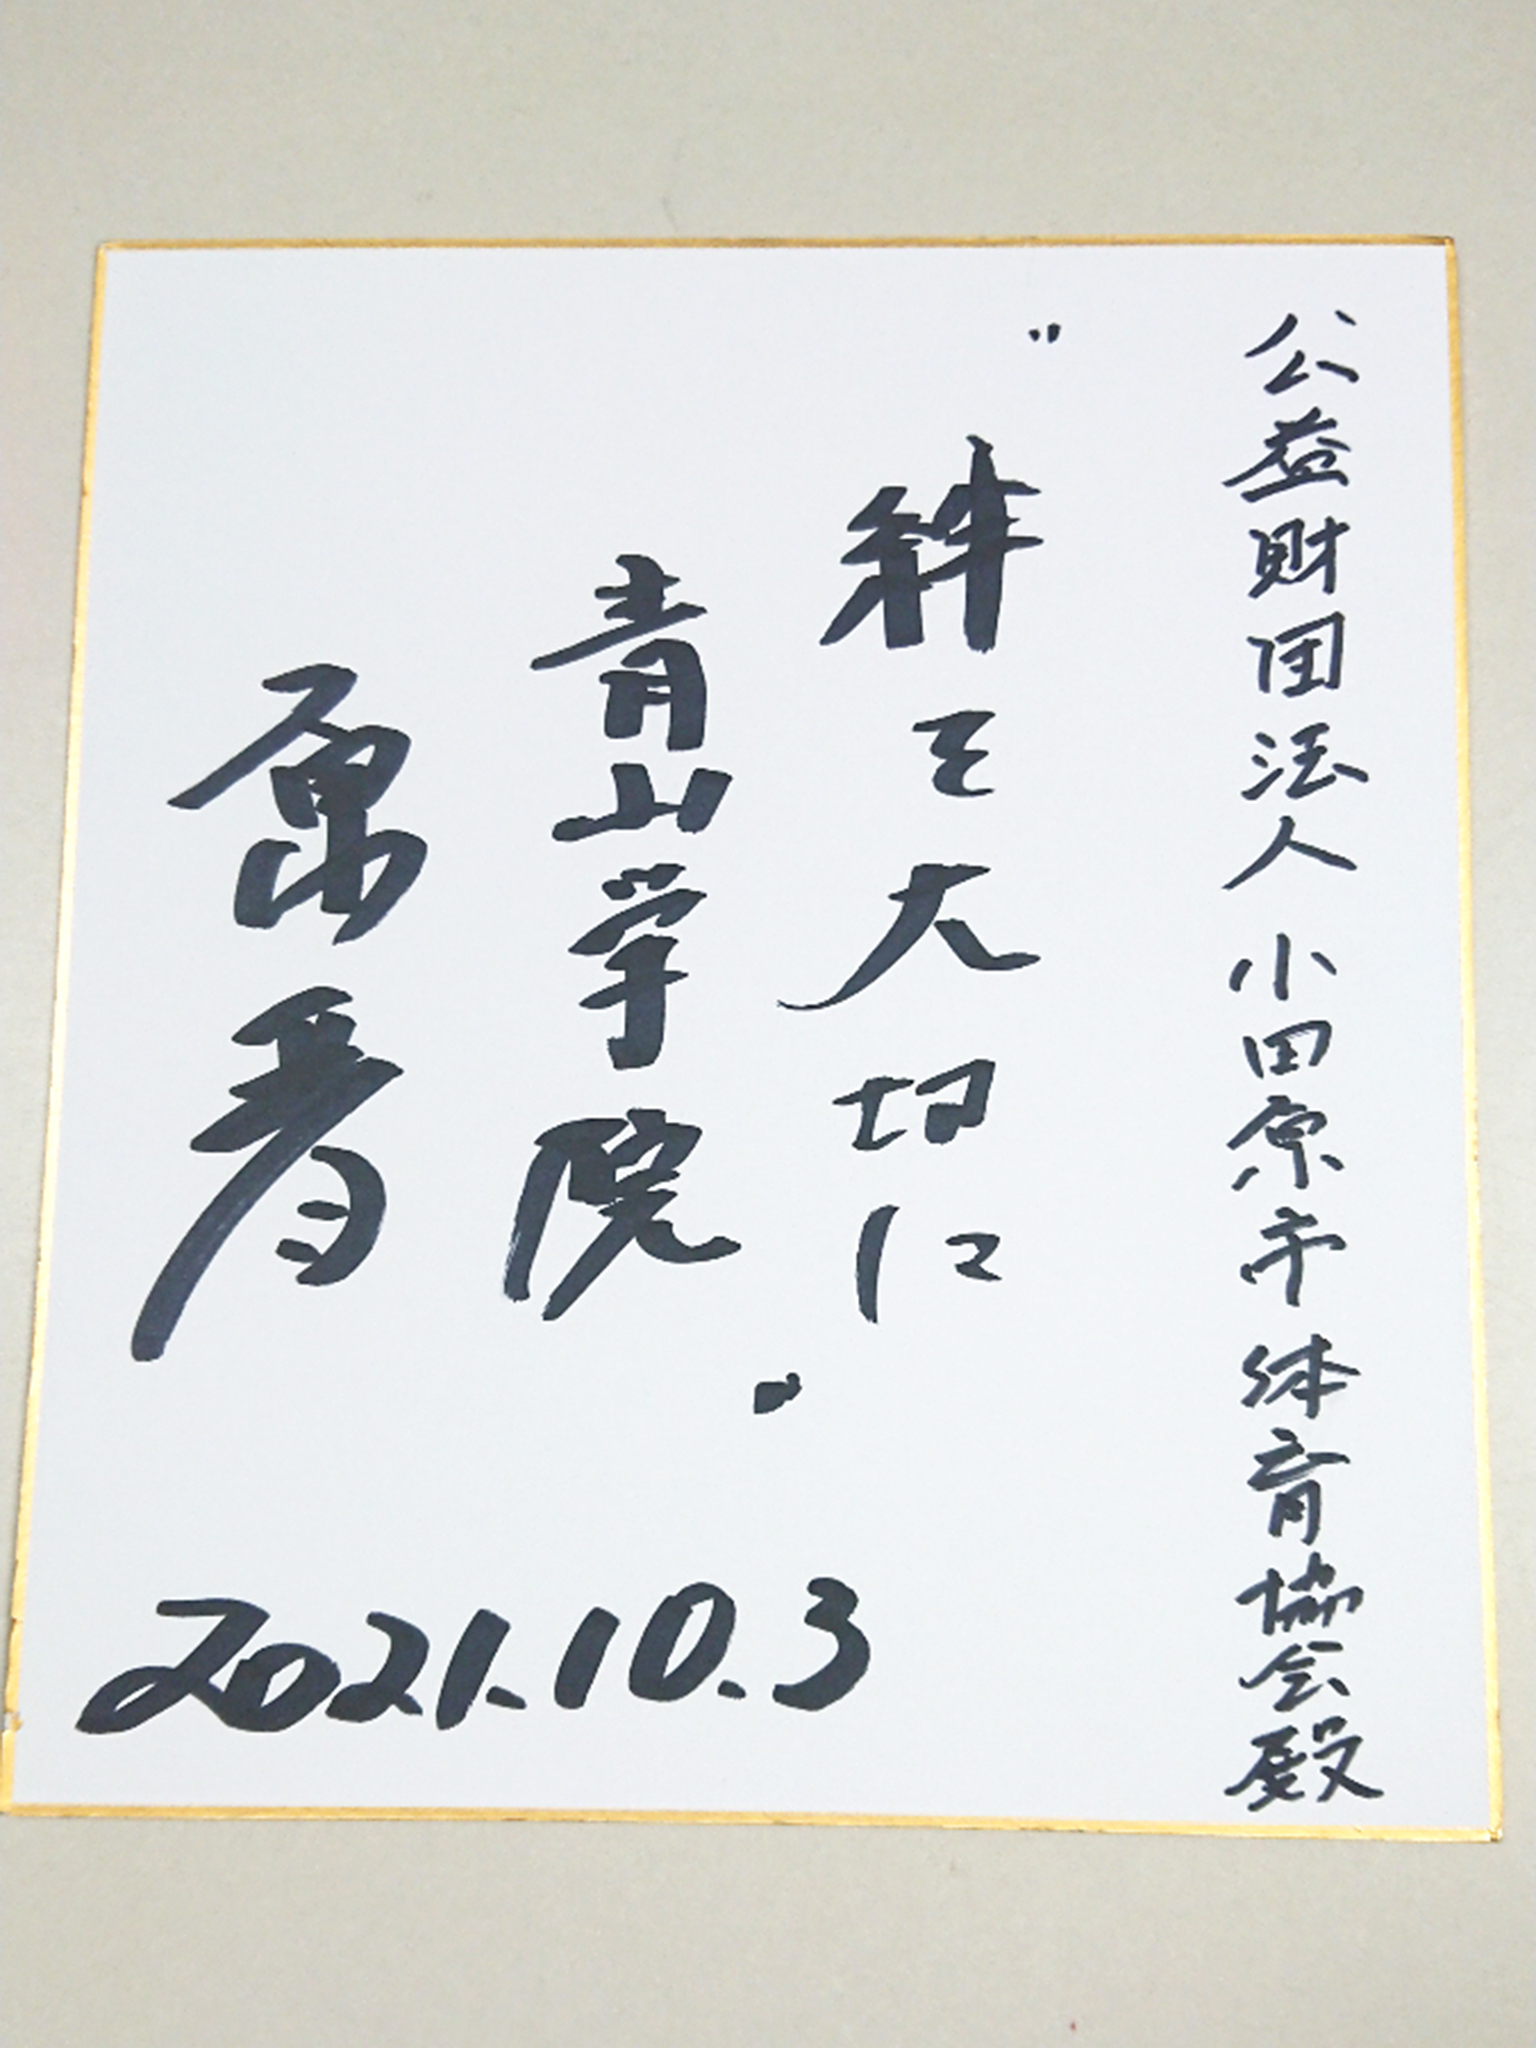 公益財団法人 小田原市体育協会殿
"絆を大切に"
青山学院
原晋
2021.10.3